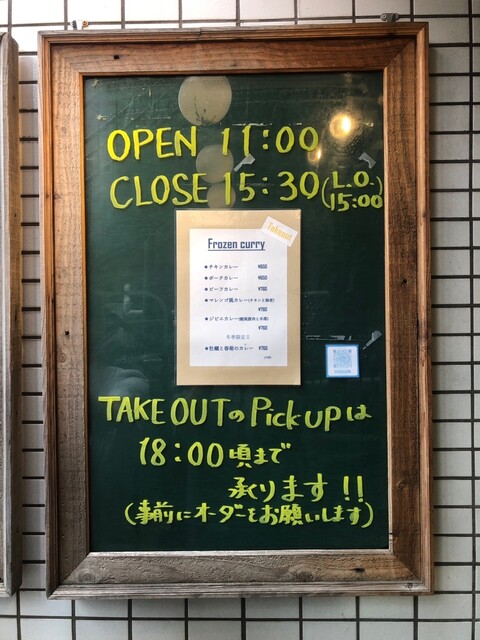 OPEN 11:00
CLOSE 15:30(L.O. 15:00)
Takeout
Frozen curry
●チキンカレー ¥650
●ポークカレー ¥650
●ビーフカレー ¥760
●マレンゴ風カレー(チキンと海老)
¥760
●ジビエカレー
¥760
●牡蠣と春菊のカレー ¥760
TAKE OUTのPick upは
18:00頃まで
承ります!!
(事前にオーダーをお願いします)